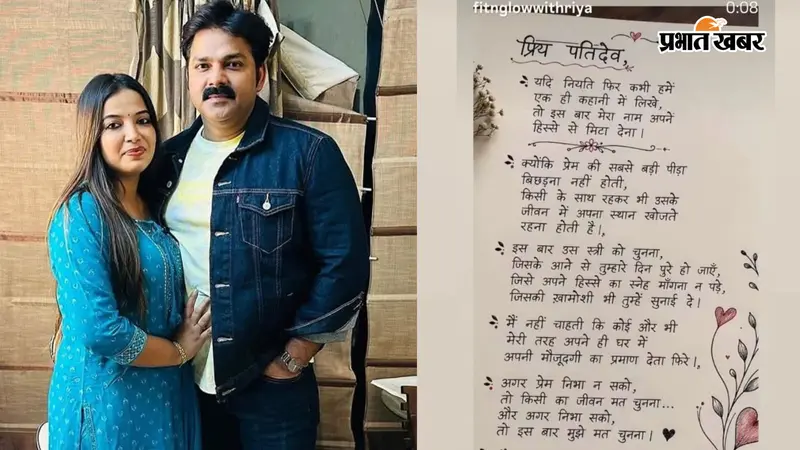 fitnglowwithriya
0:08
प्रभात खबर
प्रिय पतिदेव,
यदि नियति फिर कभी हमें
एक ही कहानी में लिखे,
तो इस बार मेरा नाम अपने
हिस्से से मिटा देना।
क्योंकि प्रेम की सबसे बड़ी पीड़ा
बिछड़ना नहीं होती,
किसी के साथ रहकर भी उसके
जीवन में अपना स्थान खोजते
रहना होती है।,
इस बार उस स्त्री को चुनना,
जिसके आने से तुम्हारे दिन पुरे हो जाएँ,
जिसे अपने हिस्से का स्नेह माँगना न पड़े,
जिसकी ख़ामोशी भी तुम्हें सुनाई दे।
मैं नहीं चाहती कि कोई और भी
मेरी तरह अपने ही घर में
अपनी मौजूदगी का प्रमाण देता फिरे।,
अगर प्रेम निभा न सको,
तो किसी का जीवन मत चुनना...
और अगर निभा सको,
तो इस बार मुझे मत चुनना।